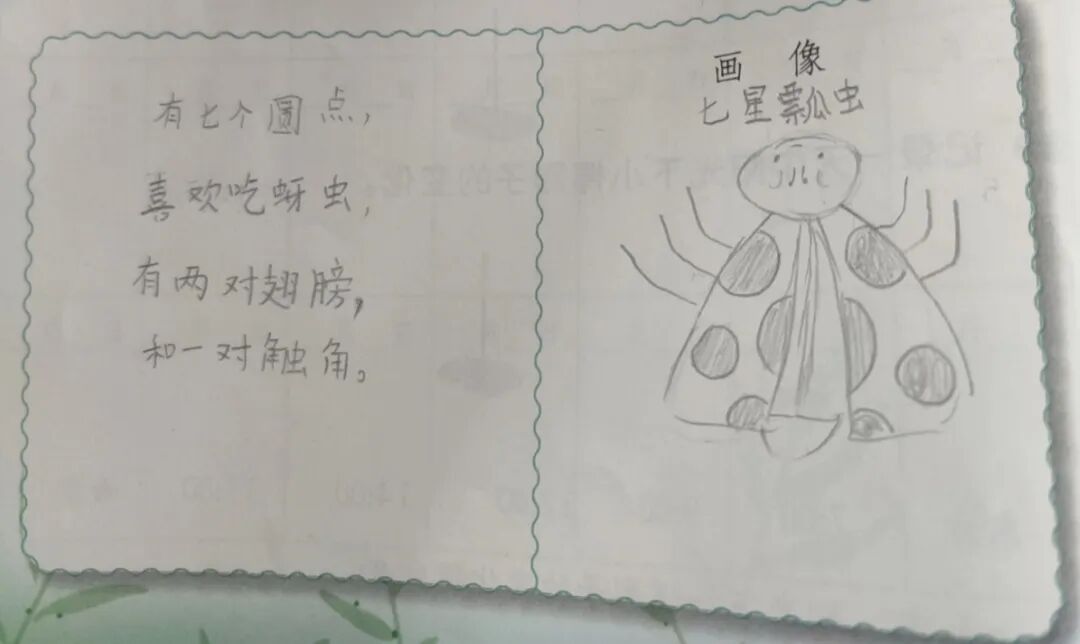 有七个圆点，
喜欢吃蚜虫，
有两对翅膀，
和一对触角。
画 像
七星瓢虫